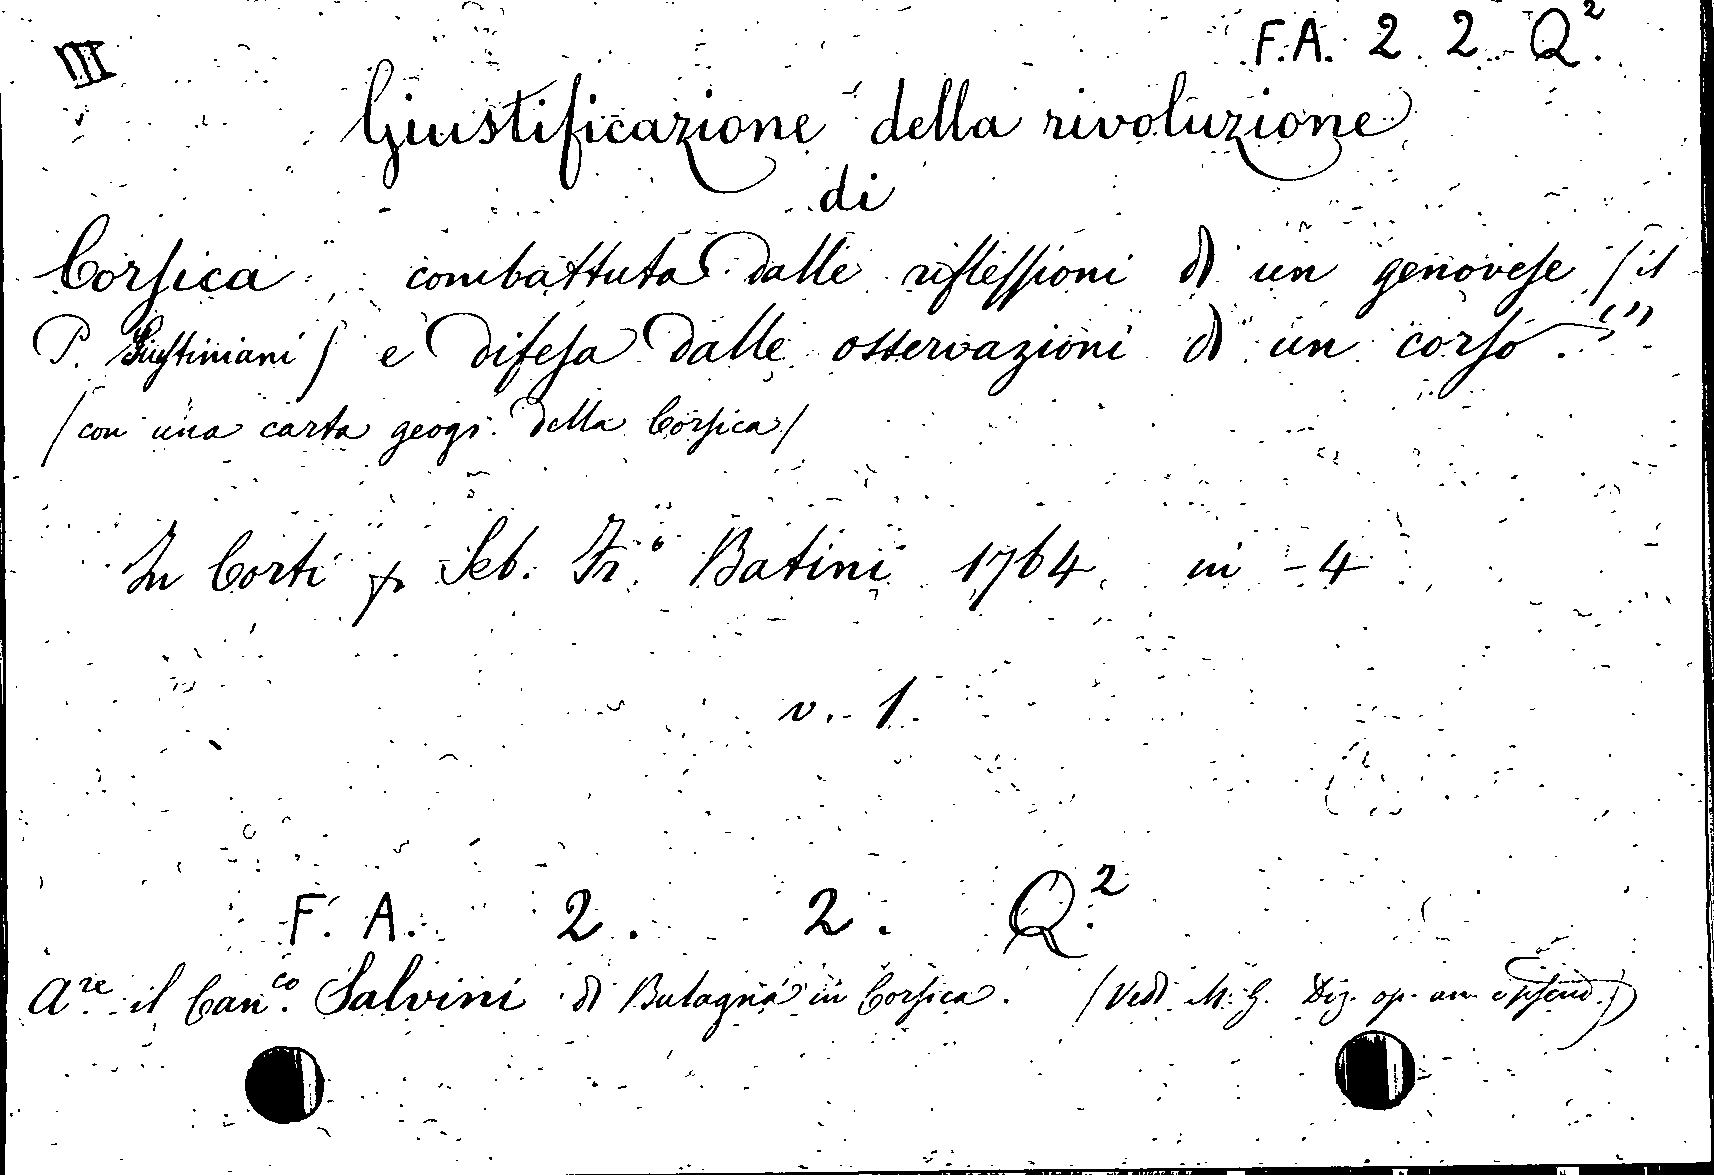 III
F. A. 2. 2. Q².
Giustificazione della rivoluzione
di
Corsica combattuta dalle riflessioni di un genovese (il
P. Giustiniani) e difesa dalle osservazioni di un corso."
(con una carta geogr. della Corsica)
In Corti p. Seb. Fr.º Batini 1764 in - 4
v. 1.
F. A. 2. 2. Q.²
A.re il Can.co Salvini di Balagna in Corsica. (Vedi M. G. Diz. op. an. e pseud.)